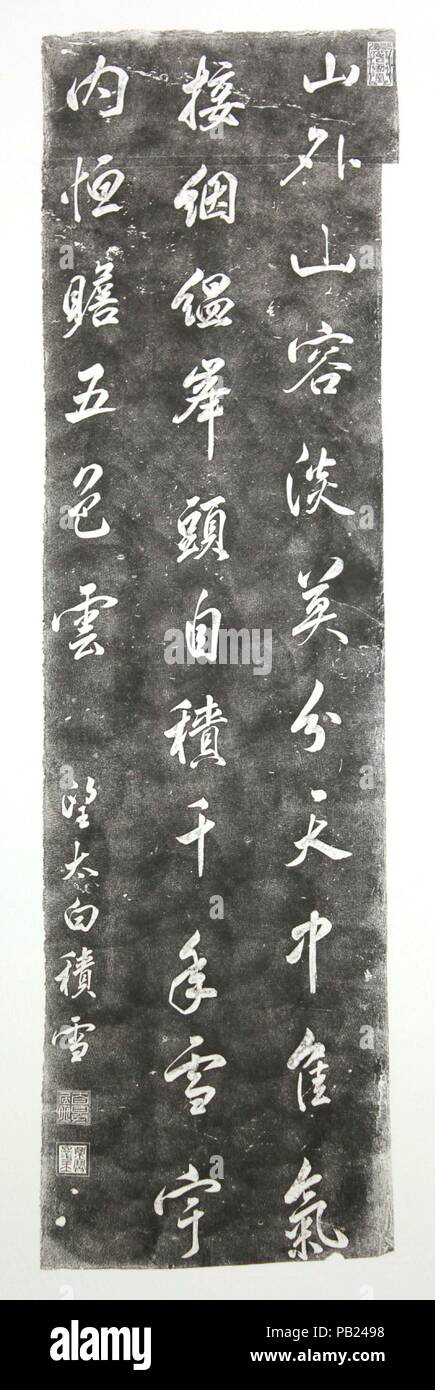 山外山容淡莫分天中佳氣
接絪縕峯頭自積千年雪宇
内恒瞻五色雲
望太白積雪
alamy
alamy
Image ID: PB2498
www.alamy.com